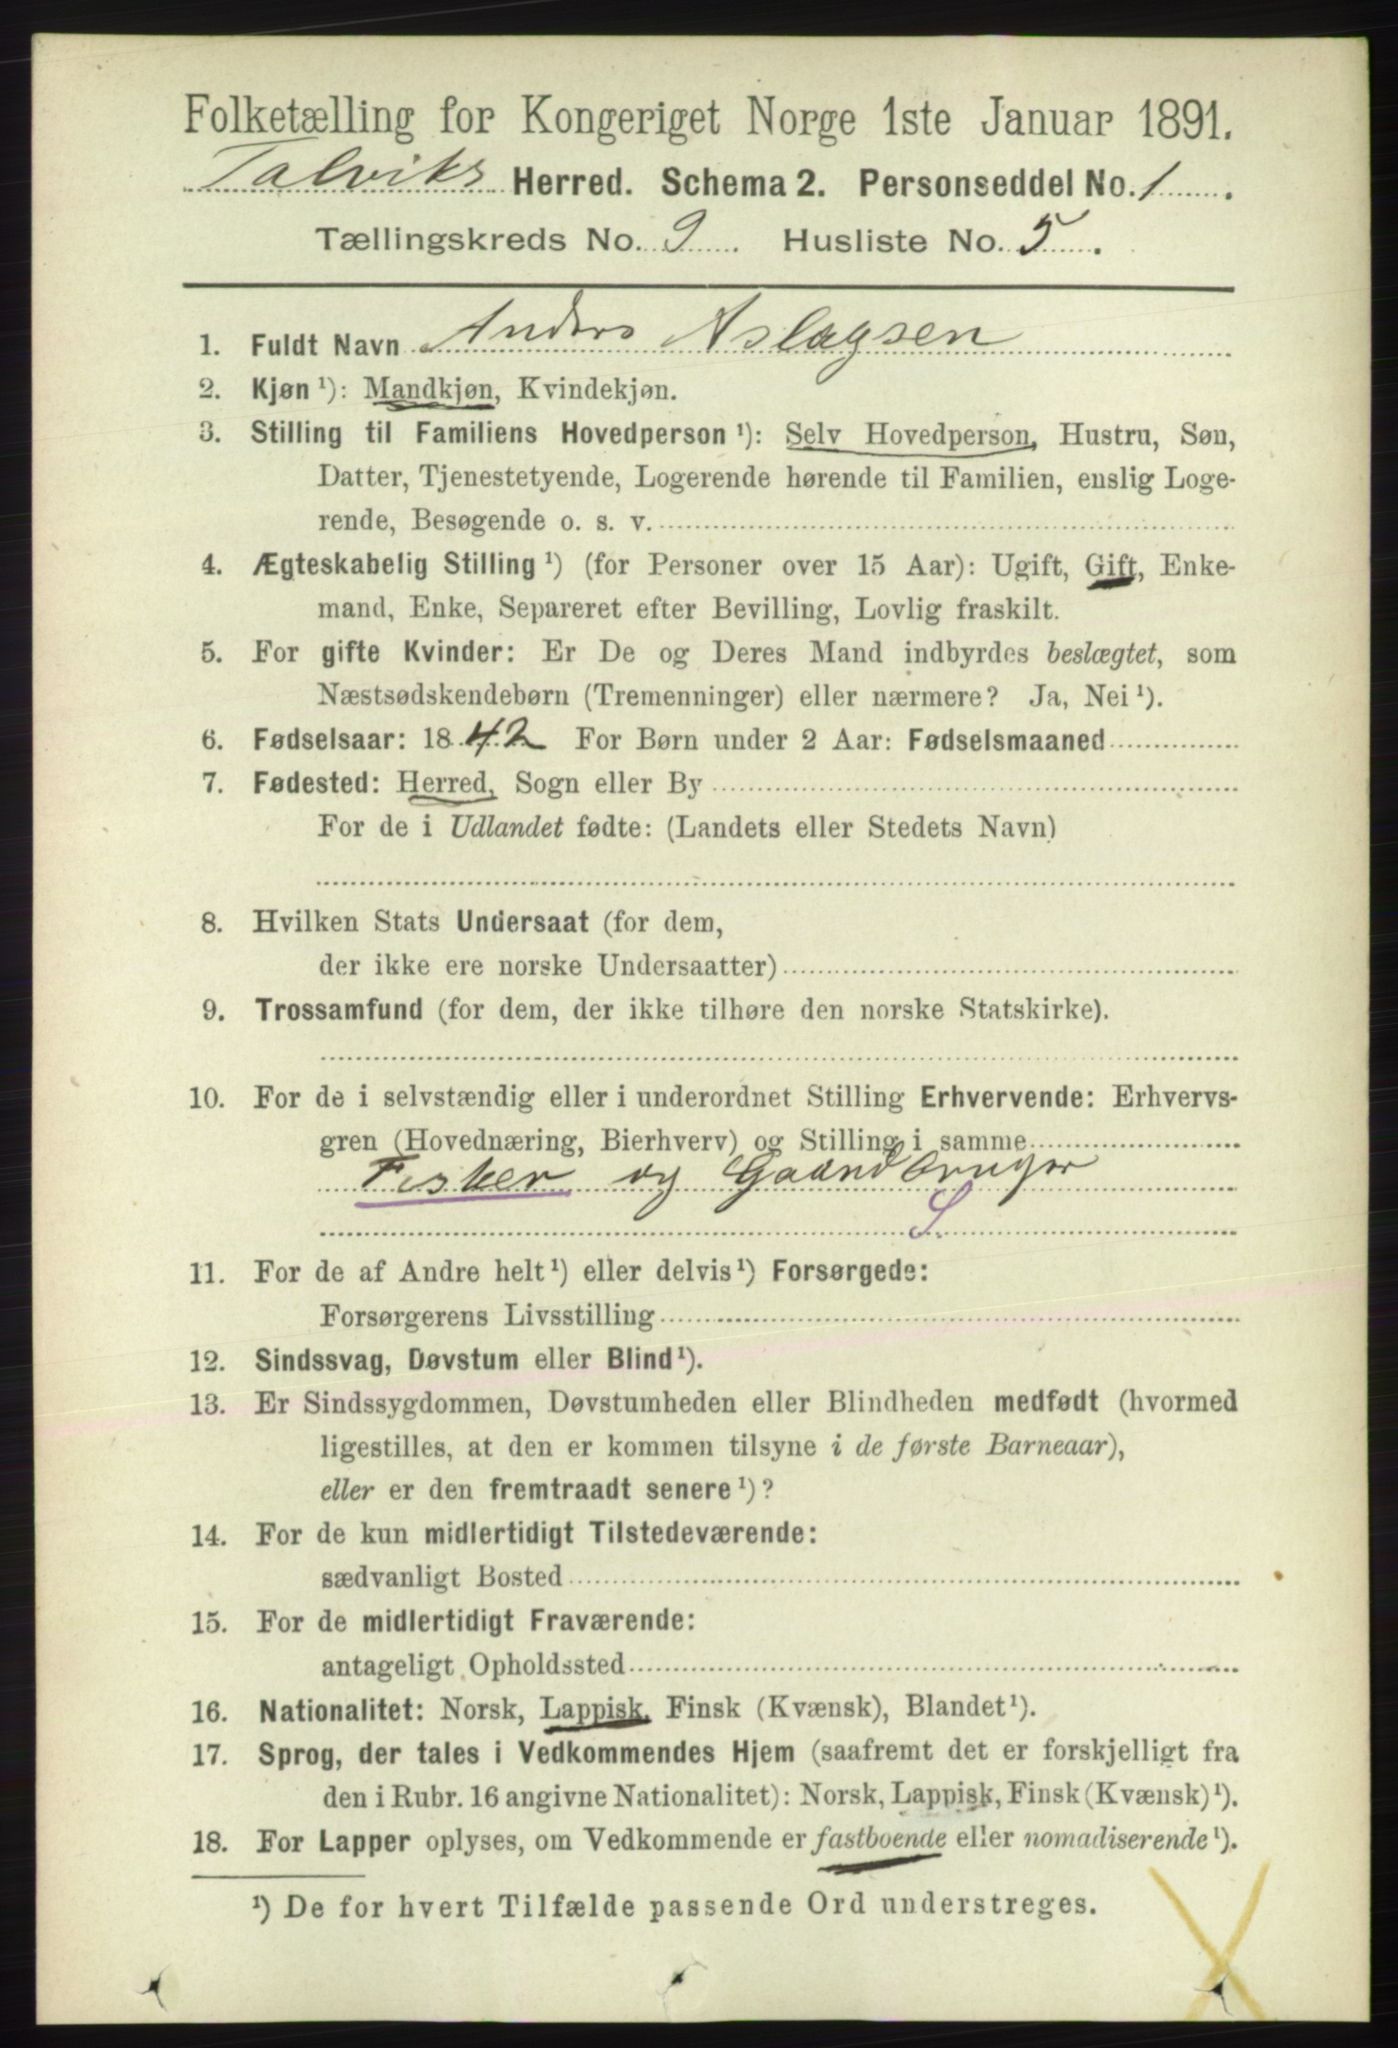 Folketælling for Kongeriget Norge 1ste Januar 1891.
Talviks Herred. Schema 2. Personseddel No. 1.
Tællingskreds No. 9. Husliste No. 5.
1. Fuldt Navn Anders Aslagsen
2. Kjøn ¹): Mandkjøn, Kvindekjøn.
3. Stilling til Familiens Hovedperson ¹): Selv Hovedperson, Hustru, Søn,
Datter, Tjenestetyende, Logerende hørende til Familien, enslig Loge-
rende, Besøgende o. s. v.
4. Ægteskabelig Stilling ¹) (for Personer over 15 Aar): Ugift, Gift, Enke-
mand, Enke, Separeret efter Bevilling, Lovlig fraskilt.
5. For gifte Kvinder: Er De og Deres Mand indbyrdes beslægtet, som
Næstsødskendebørn (Tremenninger) eller nærmere? Ja, Nei ¹).
6. Fødselsaar: 1842 For Børn under 2 Aar: Fødselsmaaned
7. Fødested: Herred, Sogn eller By
For de i Udlandet fødte: (Landets eller Stedets Navn)
8. Hvilken Stats Undersaat (for dem,
der ikke ere norske Undersaatter)
9. Trossamfund (for dem, der ikke tilhøre den norske Statskirke).
10. For de i selvstændig eller i underordnet Stilling Erhvervende: Erhvervs-
gren (Hovednæring, Bierhverv) og Stilling i samme
Fisker og Gaardbruger
S.
11. For de af Andre helt ¹) eller delvis ¹) Forsørgede:
Forsørgerens Livsstilling
12. Sindssvag, Døvstum eller Blind ¹).
13. Er Sindssygdommen, Døvstumheden eller Blindheden medfødt (hvormed
ligestilles, at den er kommen tilsyne i de første Barneaar),
eller er den fremtraadt senere ¹)?
14. For de kun midlertidigt Tilstedeværende:
sædvanligt Bosted
15. For de midlertidigt Fraværende:
antageligt Opholdssted
16. Nationalitet: Norsk, Lappisk, Finsk (Kvænsk), Blandet ¹).
17. Sprog, der tales i Vedkommendes Hjem (saafremt det er forskjelligt fra
den i Rubr. 16 angivne Nationalitet): Norsk, Lappisk, Finsk (Kvænsk) ¹).
18. For Lapper oplyses, om Vedkommende er fastboende eller nomadiserende ¹).
¹) De for hvert Tilfælde passende Ord understreges.